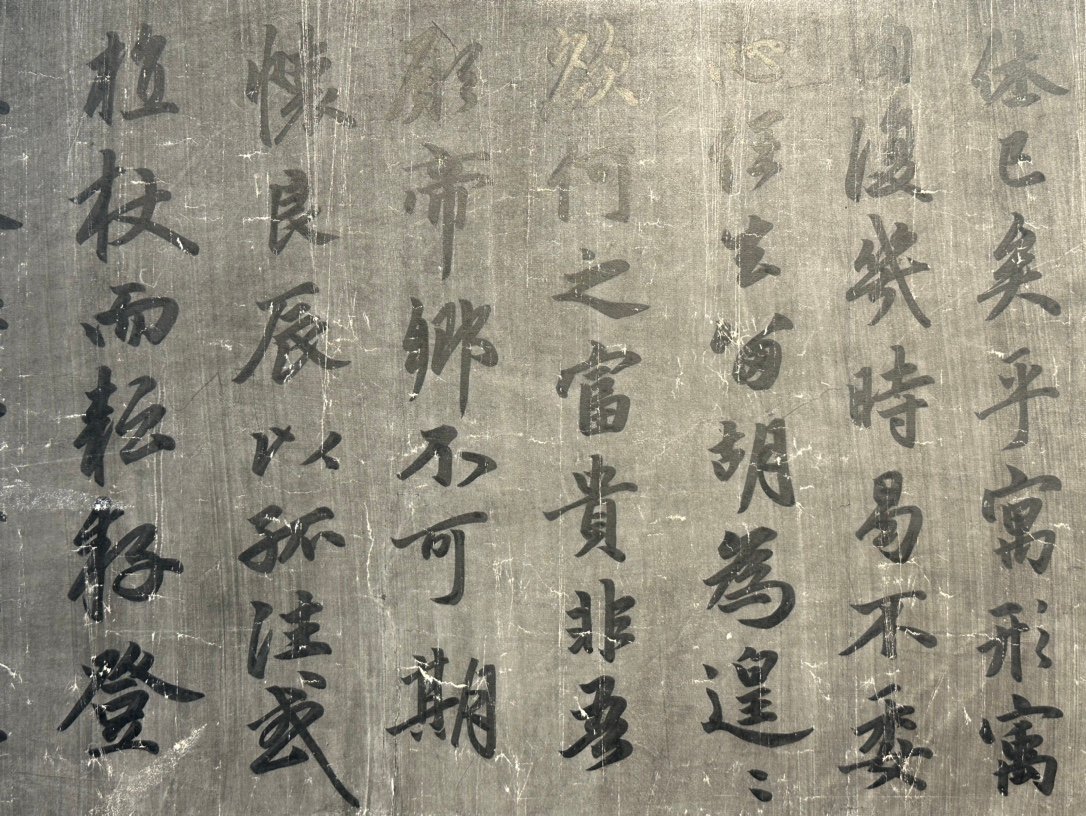 休已矣乎寓形寓
内復幾時曷不委
心任去留胡為遑〻
欲何之富貴非吾
願帝鄉不可期
懷良辰以孤往或
植杖而耘耔登